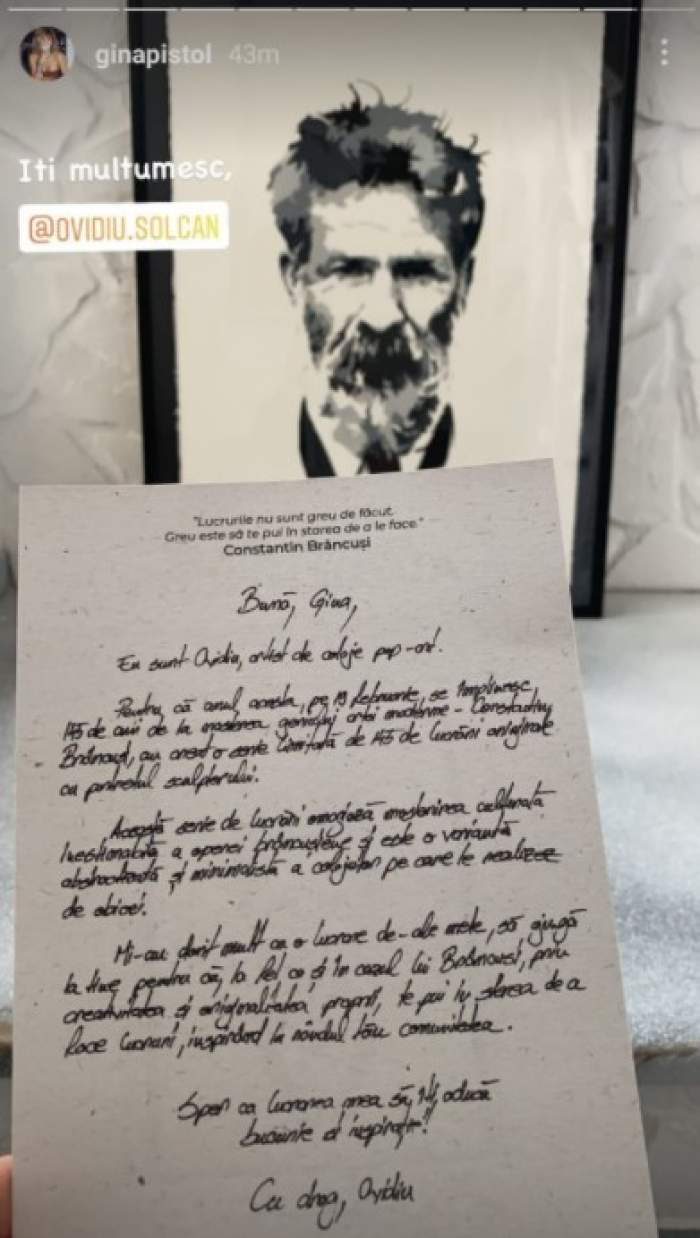 ginapistol 43m
Iti multumesc,
@OVIDIU.SOLCAN
"Lucrurile nu sunt greu de făcut.
Greu este să te pui în starea de a le face."
Constantin Brâncuși
Bună, Gina,
Eu sunt Ovidiu, artist de colaje pop-art.
Pentru că anul acesta, pe 19 februarie, se împlinesc
145 de ani de la nașterea geniului artei moderne - Constantin
Brâncuși, am creat o serie limitată de 145 de lucrări originale
cu portretul sculptorului.
Această serie de lucrări omagiază moștenirea culturală
inestimabilă a operei brâncușiene și este o variantă
abstractizată și minimalistă a colajelor pe care le realizez
de obicei.
Mi-am dorit mult ca o lucrare de-ale mele, să ajungă
la tine pentru că, la fel ca și în cazul lui Brâncuși, prin
creativitatea și originalitatea proprii, te pui în starea de a
face lucruri, inspirând la rândul tău comunitatea.
Sper ca lucrarea mea să îți aducă
bucurie și inspirație!
Cu drag, Ovidiu